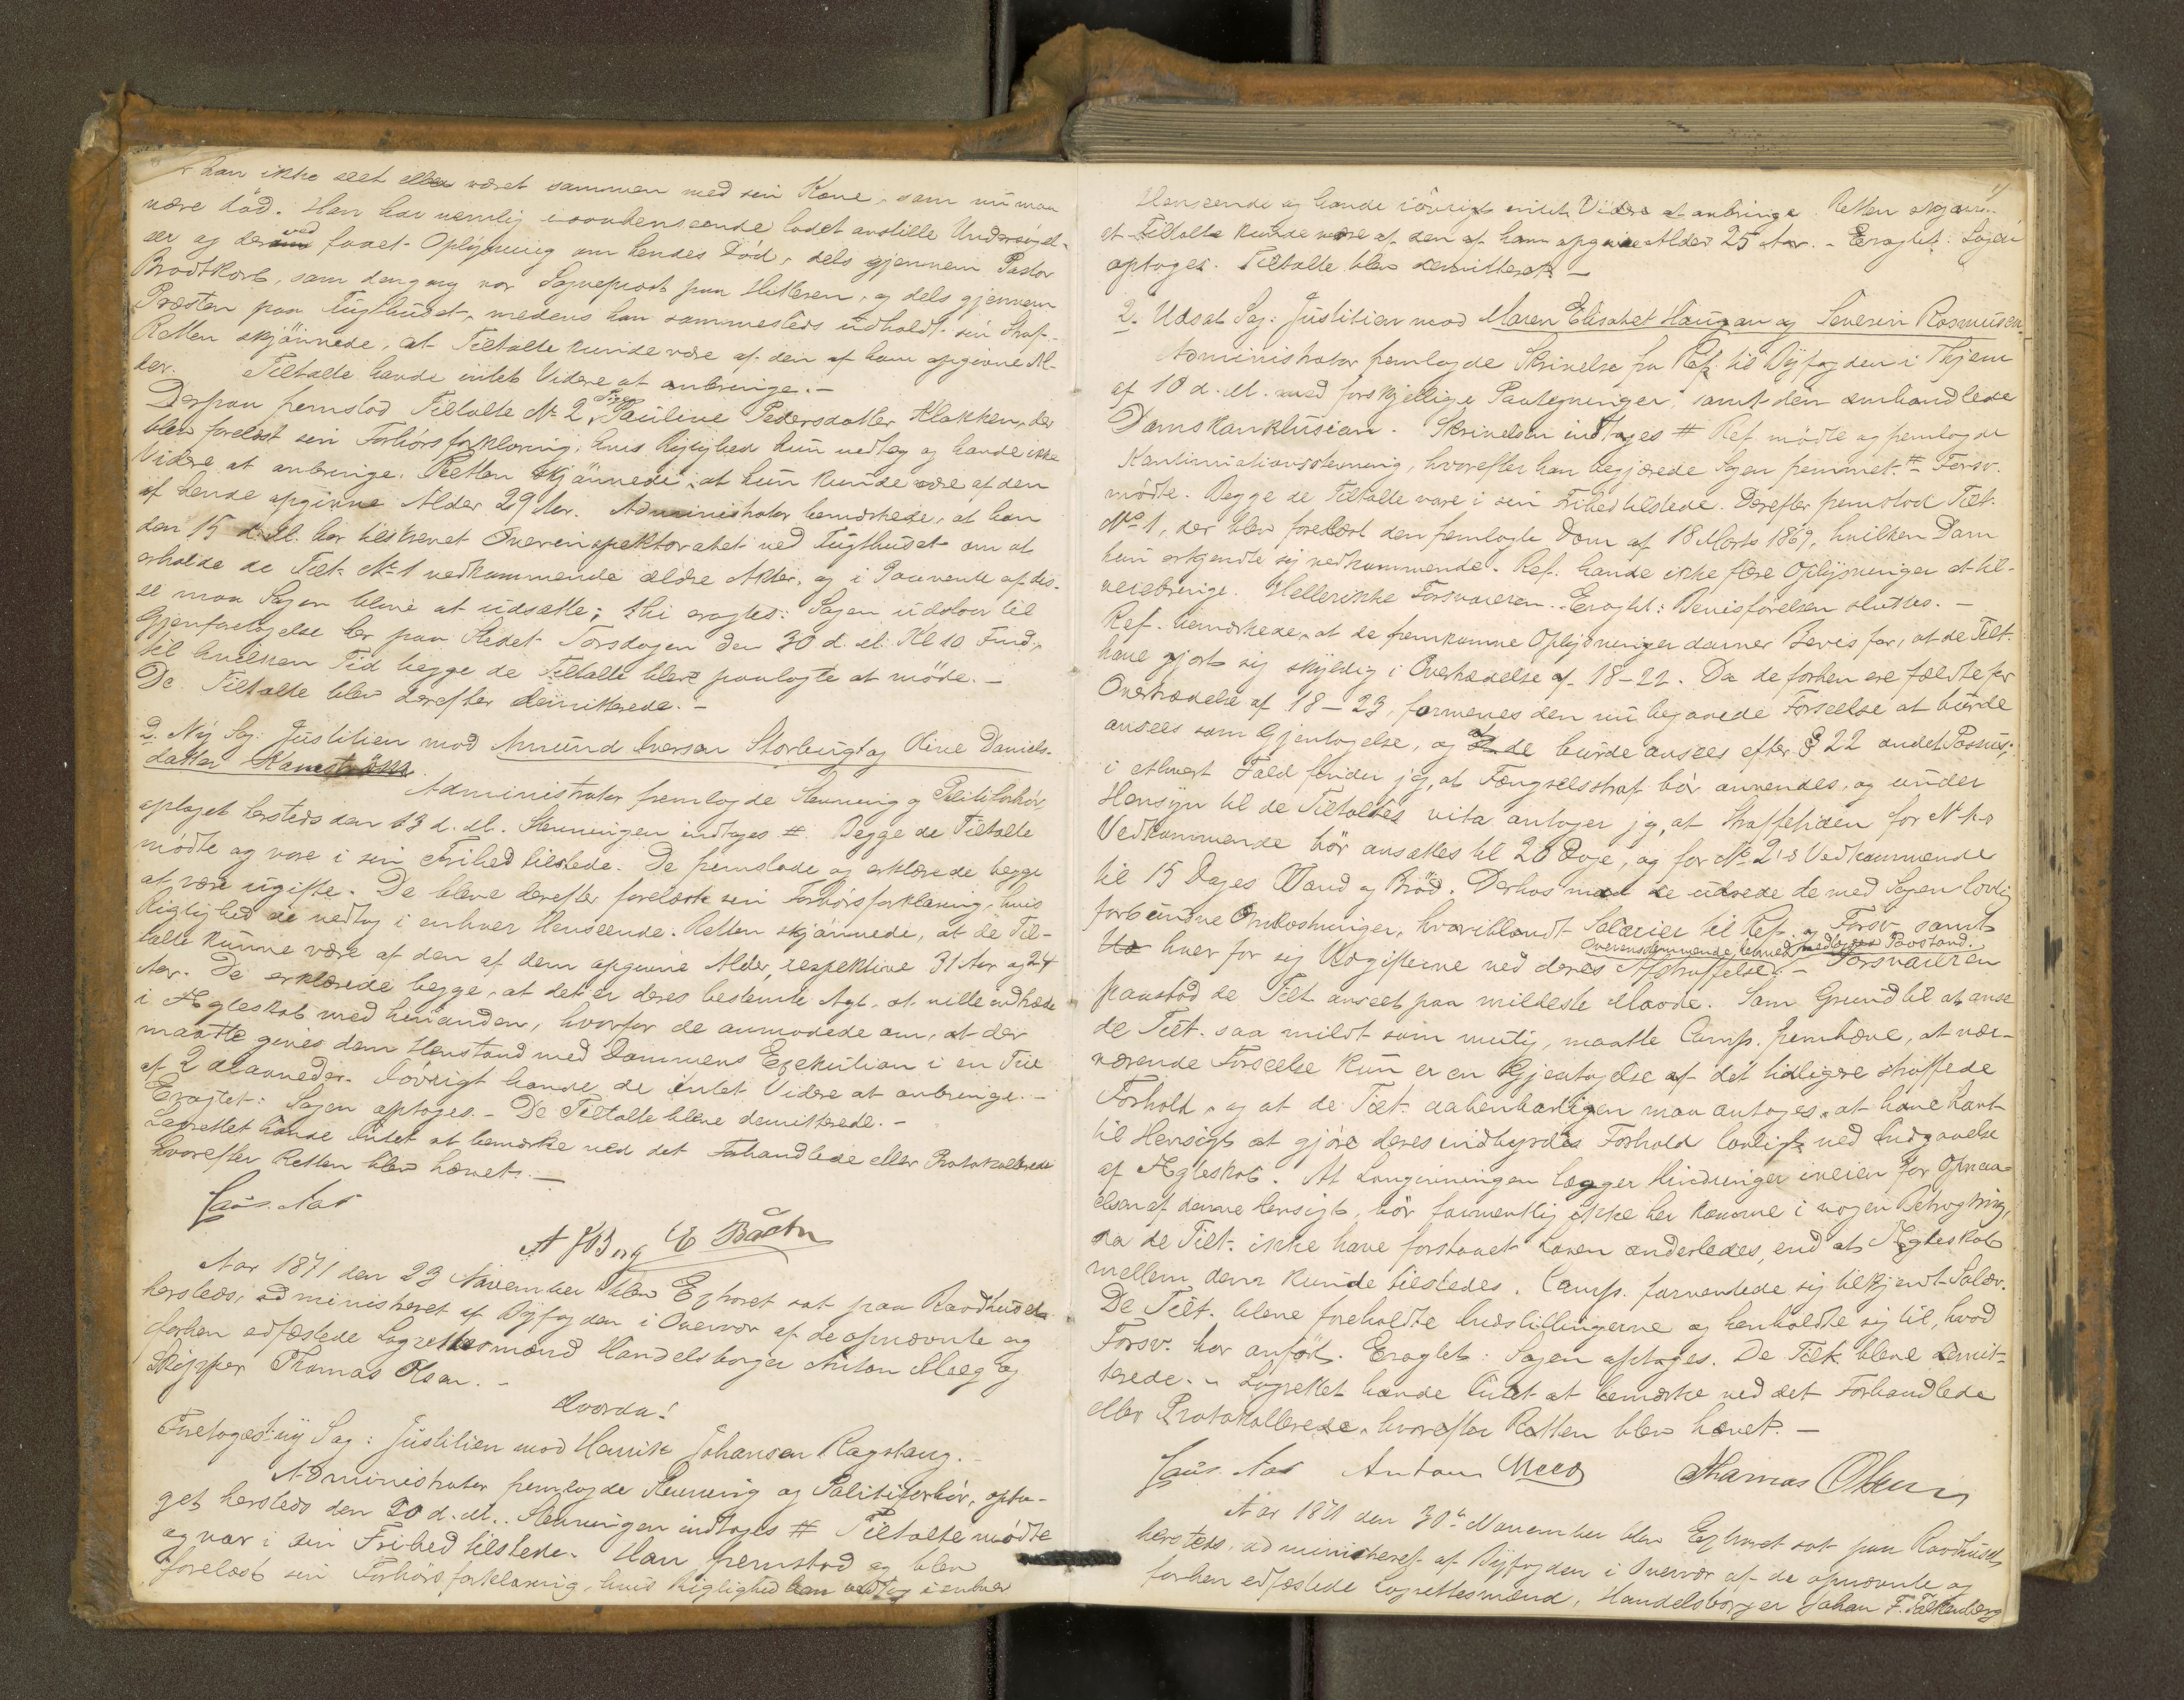 han ikke seet eller været sammen med sin Kone, som nu maa
være död. Han har nemlig i saahenseende ladet anstille Undersögel-
ser og derved faaet Oplysning om hendes Död, dels gjennem Pastor
Brodtkorb, som dengang var Sognepræst paa Hitteren, og dels gjennem
Præsten paa Tugthuset, medens han sammesteds udholdt sin Straf.-
Retten skjönnede, at Tiltalte kunde være af den af ham opgivne Al-
der. Tiltalte havde intet Videre at anbringe.-
Derpaa fremstod Tiltalte No 2, Pige Pauline Pedersdatter Klakken, der
blev forelæst sin Forhörsforklaring, hvis Rigtighed hun vedtog og havde ikke
Videre at anbringe. Retten skjönnede, at hun kunde være af den
af hende opgivne Alder 29 Aar. Administrator bemærkede, at han
den 15 d. M. har tilskrevet Overinspektoratet ved Tugthuset om at
erholde de Tilt. No 1 vedkommende ældre Akter, og i Paavente af dis-
se maa Sagen blive at udsætte; thi eragtes: Sagen udstaar til
Gjenforetagelse her paa Stedet Torsdagen den 30 d. M. Kl 10 Fmd.,
til hvilken Tid begge de Tiltalte bleve paalagte at möde.-
De Tiltalte blev derefter demitterede.-
2. Ny Sag: Justitien mod Amund Iversen Storbugt og Oline Daniels-
datter
Administrator fremlagde Stevning og Politiforhör,
optaget hersteds den 13 d. M. Stevningen indtages # Begge de Tiltalte
mödte og vare i sin Frihed tilstede. De fremstode og erklærede begge
at være ugifte. De bleve derefter forelæste sin Forhörsforklaring, hvis
Rigtighed de vedtog i enhver Henseende. Retten skjönnede, at de Til-
talte kunne være af den af dem opgivne Alder, respektive 31 Aar og 24
Aar. De erklærede begge, at det er deres bestemte Agt, at ville indtræde
i Ægteskab med hinanden, hvorfor de anmodede om, at der
maatte gives dem Henstand med Dommens Exekution i en Tid
af 2 Maaneder. Iövrigt havde de intet Videre at anbringe.-
Eragtet: Sagen optages.- De Tiltalte bleve demitterede.-
Lagrettet havde Intet at bemærke ved det Forhandlede eller Protokollerede
hvorefter Retten blev hævet.-
Aar 1871 den 23 November blev Extraret sat paa Raadhuset
hersteds, administreret af Byfogden i Overvær af de opnævnte og
forhen edfæstede Lagrettesmænd Handelsborger Anton Moeg og
Skipper Thomas Olsen.-
Hvorda!
Foretoges ny Sag: Justitien mod Henrik Johansen Ragstang.-
Administrator fremlagde Stevning og Politiforhör, opta-
get hersteds den 20 d. M. Stevningen indtages # Tiltalte mödte
og var i sin Frihed tilstede. Han fremstod og blev
forelæst sin Forhörsforklaring, hvis Rigtighed han vedtog i enhver
Henseende og havde iövrigt intet Videre at anbringe. Retten skjönnede
at Tiltalte kunde være af den af ham opgivne Alder 25 Aar.- Eragtet: Sagen
optages. Tiltalte blev demitteret.-
2. Udsat Sag: Justitien mod Maren Elisabet Haugan og Severin Rasmusen.
Administrator fremlagde Skrivelse fra Ref. til Byfogden i Thjem
af 10 d. M. med forskjellige Paategninger, samt den omhandlede
Domskonklusion. Skrivelsen indtages # Ref. mödte og fremlagde
Kontinuationsstevning, hvorefter han begjærede Sagen fremmet. # Forsv.
mödte. Begge de Tiltalte vare i sin Frihed tilstede. Derefter fremstod Tilt.
No 1, der blev forelæst den fremlagte Dom af 18 Marts 1869, hvilken Dom
hun erkjendte sig vedkommende. Ref. havde ikke flere Oplysninger at til-
veiebringe. Hellerikke Forsvareren. Eragtet: Bevisförelsen sluttes.-
Ref. bemærkede, at de fremkomne Oplysninger danner Bevis for, at de Tilt.
have gjort sig skyldig i Overtrædelse af 18-22. Da de forhen ere fældte for
Overtrædelse af 18-23, formenes den nu begaaede Forseelse at burde
ansees som Gjentagelse, og at de burde ansees efter § 22 andet Passus;
i ethvert Fald finder jeg, at Fængselsstraf bör anvendes, og under
Hensyn til de Tiltaltes vita antager jeg, at Straffetiden for No 1's
Vedkommende bör ansættes til 20 Dage, og for No 2's Vedkommende
til 15 Dages Vand og Bröd. Derhos maa de udrede de med Sagen lovlig
forbundne Omkostninger, hvoriblandt Salarier til Ref. og Forsv. samt
hver for sig Udgifterne ved deres Afstraffelse.- Overensstemmende hermed nedlagdes Paastand. Forsvareren
paastod de Tilt. anseet paa mildeste Maade. Som Grund til at anse
de Tilt. saa mildt som mulig, maatte Comp. fremhæve, at nær-
værende Forseelse kun er en Gjentagelse af det tidligere straffede
Forhold, og at de Tilt. aabenbarligen maa antages, at have havt
til Hensigt at gjöre deres indbyrdes Forhold lovligt ved Indgaaelse
af Ægteskab. At Lovgivningen lægger Hindringer iveien for Opnaa-
elsen af denne Hensigt, bör formentlig ikke her komme i nogen Betragtning,
da de Tilt. ikke have forstaaet Loven anderledes, end at Ægteskab
mellem dem kunde tilstedes. Comp. forventede sig tilkjendt Salær.
De Tilt. bleve foreholdte Indstillingerne og henholdte sig til, hvad
Forsv. har anfört. Eragtet: Sagen optages. De Tilt. bleve demit-
terede.- Lagrettet havde Intet at bemærke ved det Forhandlede
eller Protokollerede, hvorefter Retten blev hævet.-
Anton Moeg Thomas Olsen
Aar 1871 den 30te November blev Extraret sat paa Raadhuset
hersteds, administreret af Byfogden i Overvær af de opnævnte og
forhen edfæstede Lagrettesmænd, Handelsborger Johan F. Falkenberg